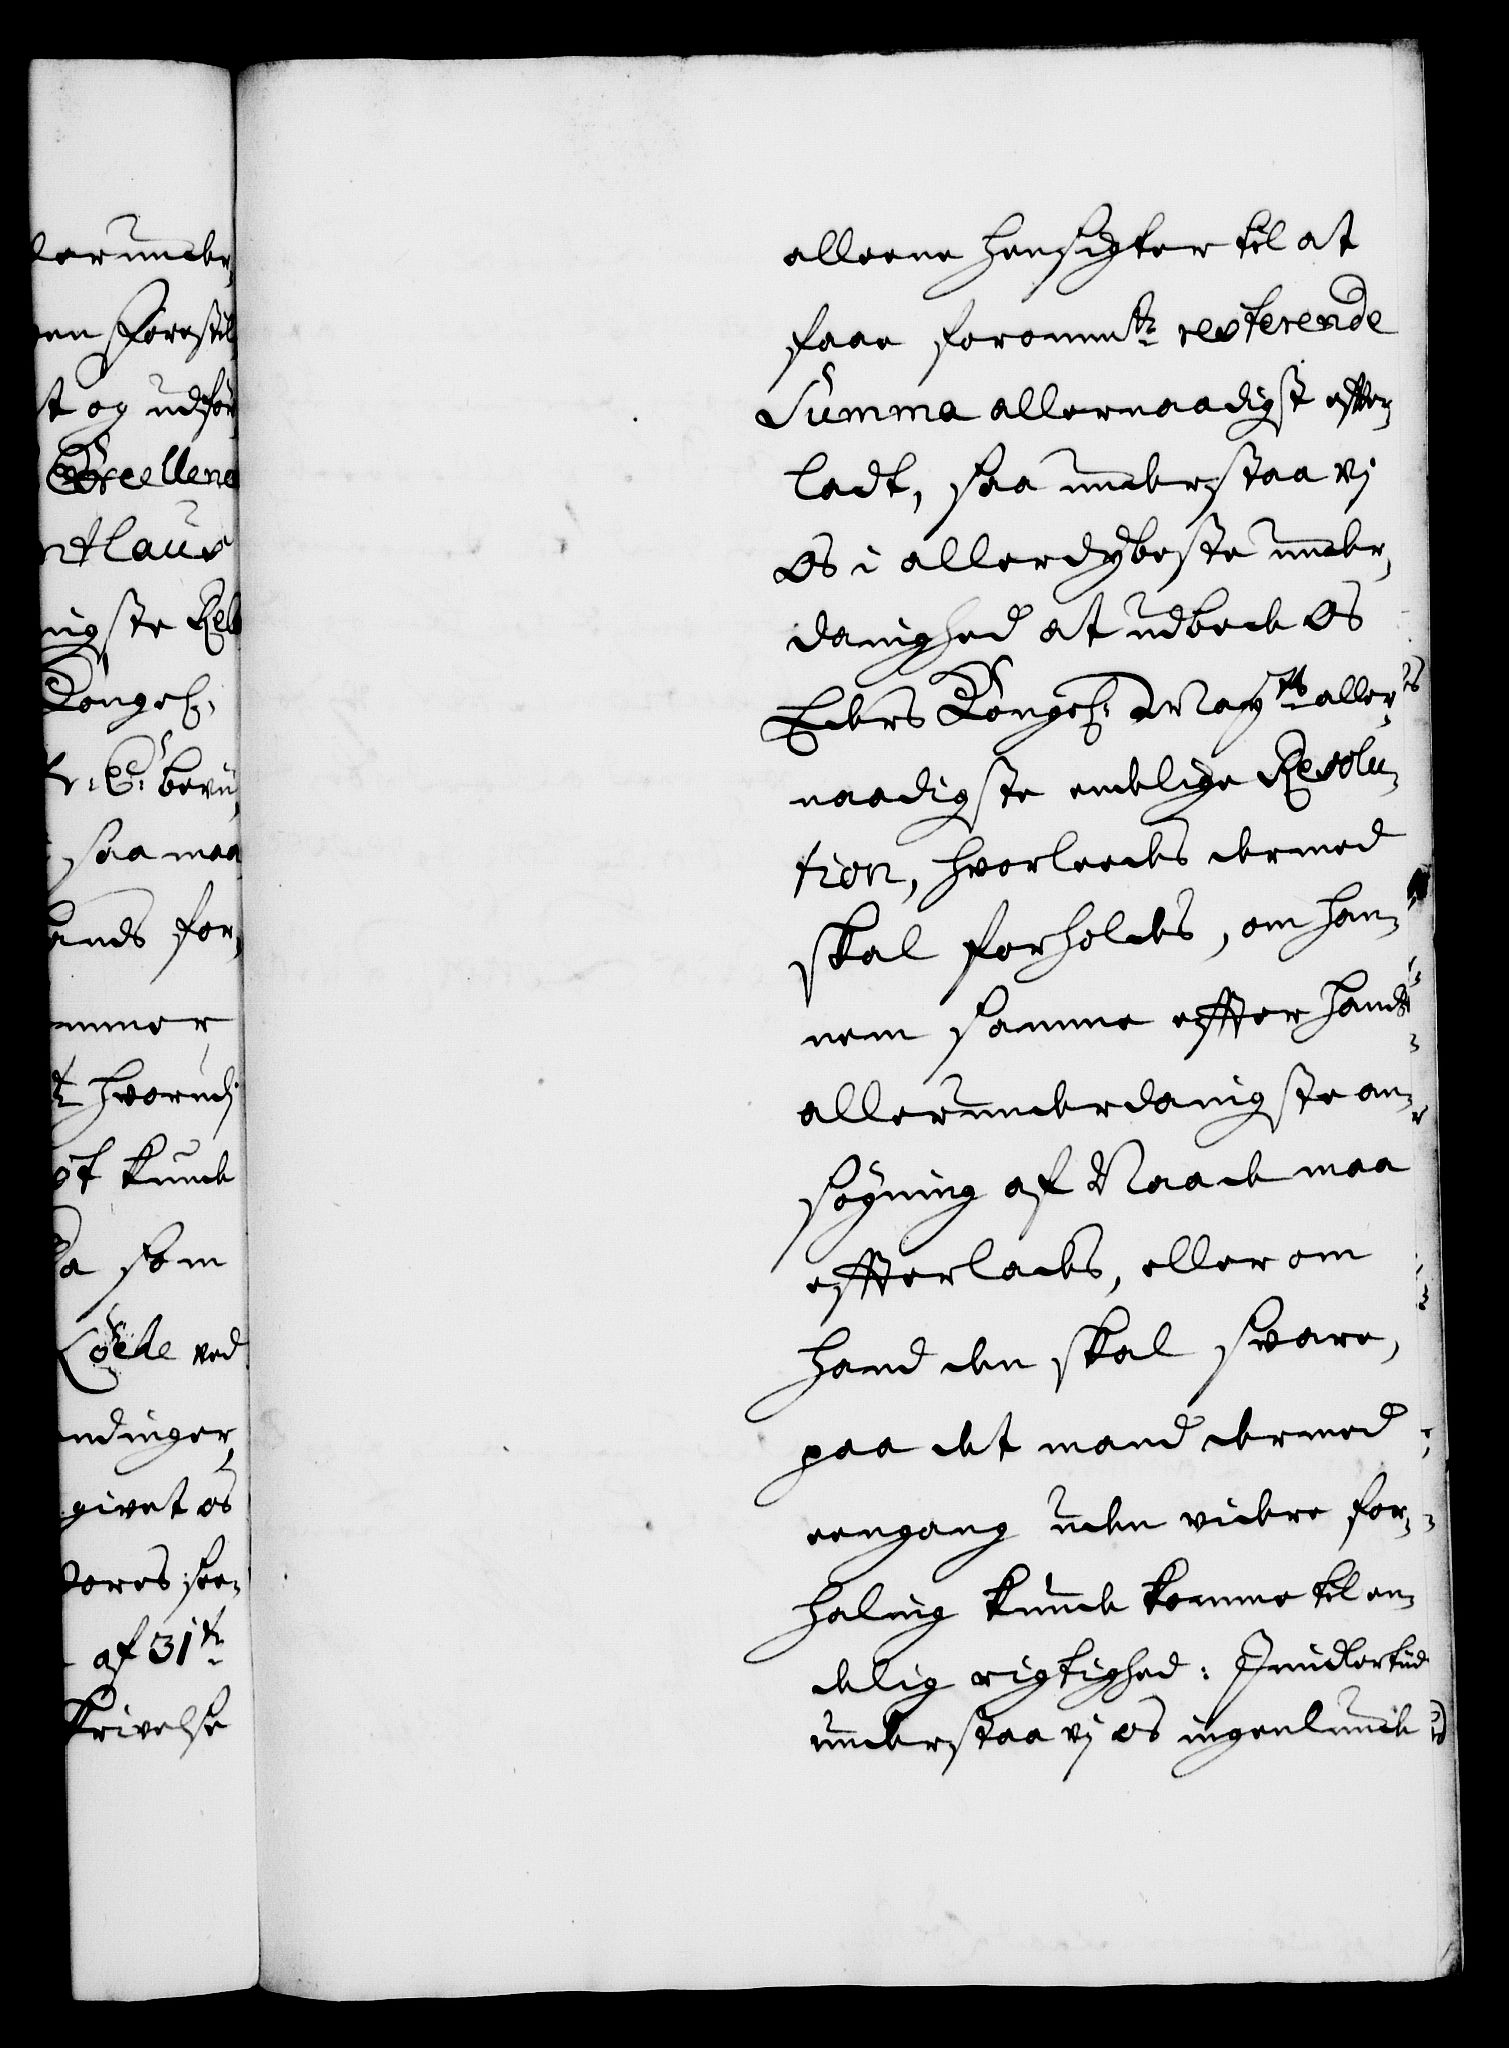 allerunder,
en Forestil
st og udför
Excellenc
ntlaus
nigste Rel
Kongel:
Kr: E: bevü
saa maa
ands for,
ommer
t hvorudj
ot kunde
da som
Löele ved
ndinger,
givet os
vores see,
af 31te
krivelse
alleene hensigter til at
faae forommte resterende
Summa allernaadigst effter,
ladt, saa understaa vj
Os i allerdybeste under,
danighed at udbede Os
Eders Kongel: Mayts aller,
naadigste endelige Resolu,
tion, hvorleedes dermed
skal forholdes, om han,
nem samme effter hands
allerunderdanigste an,
søgning af Naade maa
effterlades, eller om
hand den skal svare,
paa det mand dermed
eengang uden videre for,
haling kunde komme til en,
delig rigtighed: Imidlertiid
understaa vj os ingenlunde